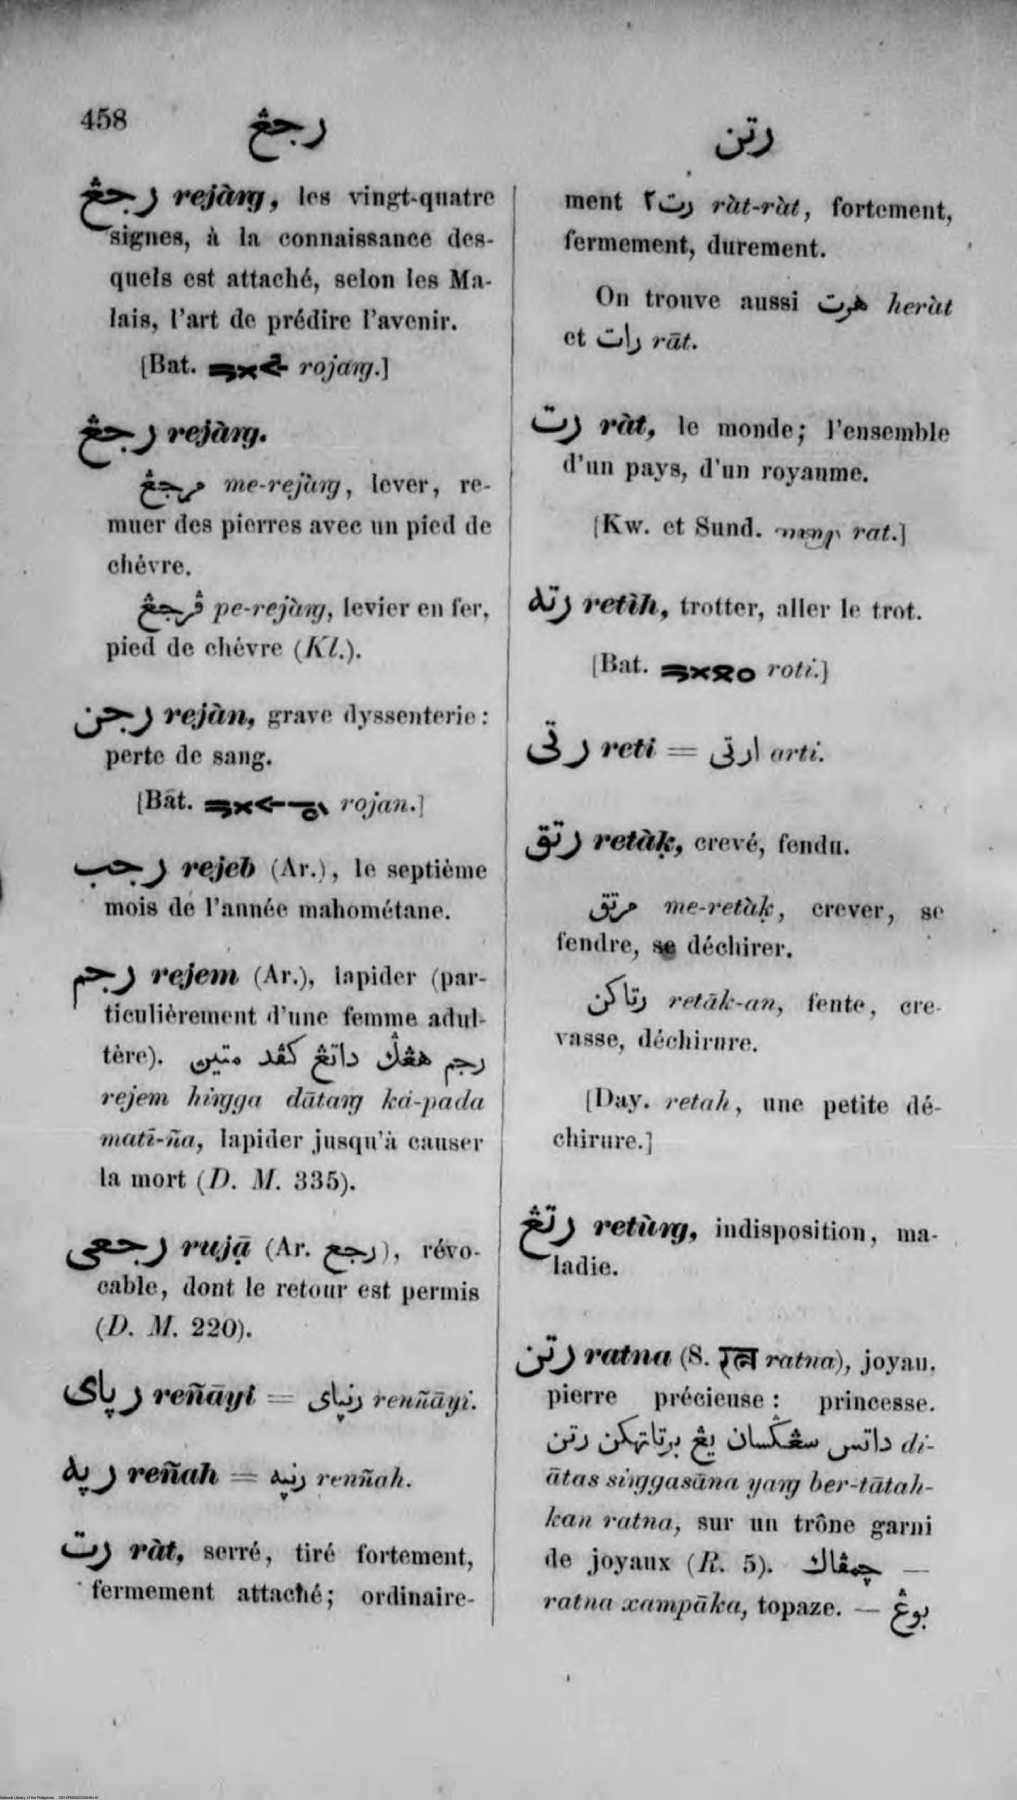 458
رجڠ
رتن
رجڠ rejàrg, les vingt-quatre
signes, à la connaissance des-
quels est attaché, selon les Ma-
lais, l'art de prédire l'avenir.
[Bat. rojarg.]
رجڠ rejàrg.
مرجڠ me-rejàrg, lever, re-
muer des pierres avec un pied de
chèvre.
ڤرجڠ pe-rejàrg, levier en fer,
pied de chèvre (Kl.).
رجن rejàn, grave dyssenterie:
perte de sang.
[Bat. rojan.]
رجب rejeb (Ar.), le septième
mois de l'année mahométane.
رجم rejem (Ar.), lapider (par-
ticulièrement d'une femme adul-
tère). رجم هڠݢ داتڠ كڤد متيڽ
rejem hirgga dātarg ká-pada
matī-ña, lapider jusqu'à causer
la mort (D. M. 335).
رجعى rujạ̄ (Ar. رجع), révo-
cable, dont le retour est permis
(D. M. 220).
رڽاى reñāyi = رنڽاى renñāyi.
رڽه reñah = رنڽه renñah.
رت ràt, serré, tiré fortement,
fermement attaché; ordinaire-
ment رت٢ ràt-ràt, fortement,
fermement, durement.
On trouve aussi هرت heràt
et رات rāt.
رت ràt, le monde; l'ensemble
d'un pays, d'un royaume.
[Kw. et Sund. rat.]
رته retìh, trotter, aller le trot.
[Bat. roti.]
رتى reti = ارتى arti.
رتق retàḳ, crevé, fendu.
مرتق me-retàḳ, crever, se
fendre, se déchirer.
رتاكن retāk-an, fente, cre-
vasse, déchirure.
[Day. retah, une petite dé-
chirure.]
رتڠ retùrg, indisposition, ma-
ladie.
رتن ratna (S. रत्न ratna), joyau,
pierre précieuse: princesse.
داتس سڠݢسان يڠ برتاتهكن رتن di-
ātas sirggasāna yarg ber-tātah-
kan ratna, sur un trône garni
de joyaux (R. 5). چمڤاك —
ratna xampāka, topaze. — بوڠ